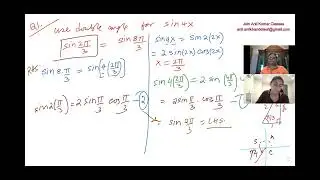 Q1. use double angle for sin 4x
sin 2π/3 = sin 8π/3
RHS sin 8·π/3 = sin 4(2π/3)
sin 2(π/3) = 2 sin π/3 cos π/3 - ②
sin 4x = sin 2(2x)
= 2 sin(2x) cos(2x)
x = 2π/3
= 2 sin π/3 · cos π/3 -
= sin 2π/3 = LHS.
Join Anil Kumar Classes
anil.anilkhandelwal@gmail.com
S A
T C
π/3